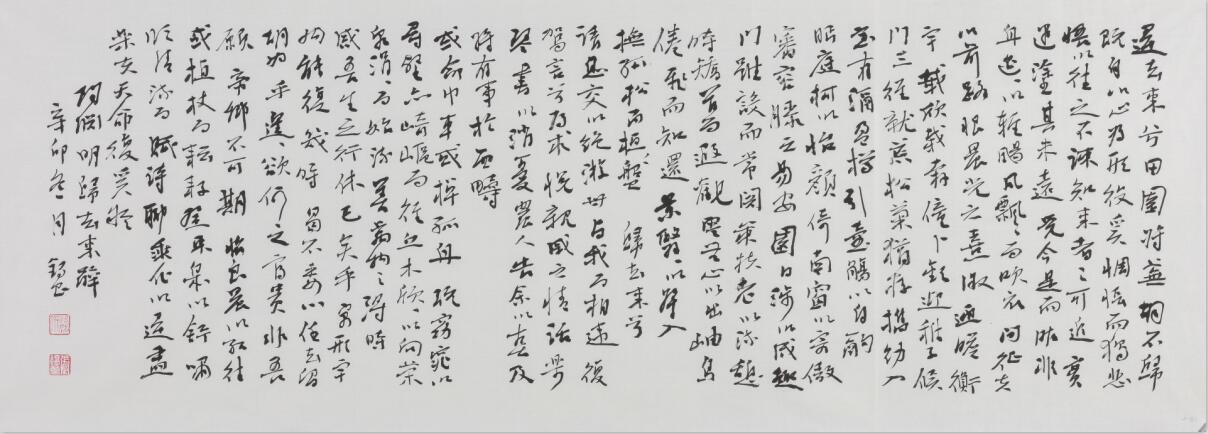 歸去來兮田園將蕪胡不歸
既自以心為形役奚惆悵而獨悲
悟以往之不諫知來者之可追實
迷塗其未遠覺今是而昨非
舟遙遙以輕颺風飄飄而吹衣問征夫
以前路恨晨光之熹微迺瞻衡
宇載欣載奔僮僕歡迎稚子候
門三徑就荒松菊猶存攜幼入
室有酒盈樽引壺觴以自酌
眄庭柯以怡顏倚南窗以寄傲
審容膝之易安園日涉以成趣
門雖設而常關策扶老以流憩
時矯首而遐觀雲無心以出岫鳥
倦飛而知還景翳翳以將入
撫孤松而桓盤歸去來兮
請息交以絕游世與我而相違復
駕言兮焉求悅親戚之情話樂
琴書以消憂農人告余以春及
將有事於西疇
或命巾車或棹孤舟既窈窕以
尋壑亦崎嶇而經丘木欣欣以向榮
泉涓涓而始流善萬物之得時
感吾生之行休已矣乎寓形宇
內能復幾時曷不委心任去留
胡為乎遑遑欲何之富貴非吾
願帝鄉不可期懷良辰以孤往
或植杖而耘耔登東皋以舒嘯
臨清流而賦詩聊乘化以歸盡
樂夫天命復奚疑
陶淵明歸去來辭
辛卯冬月